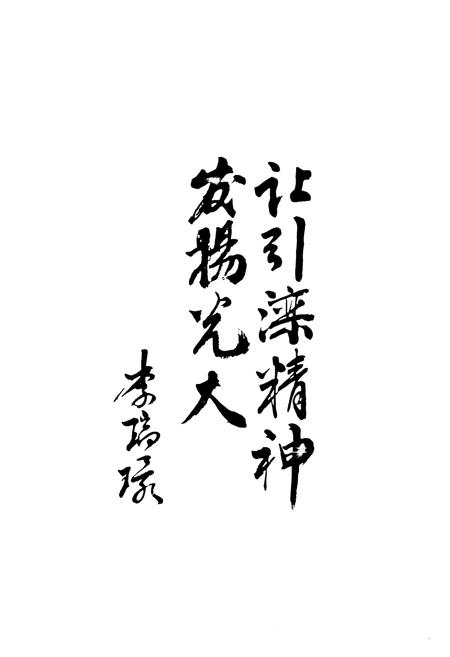 让引滦精神
发揚光大
李瑞环